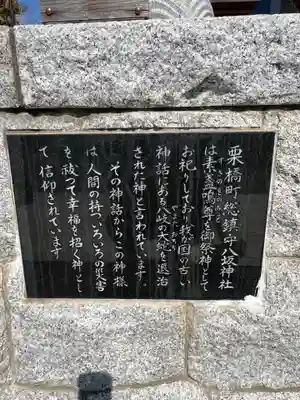 栗橋町総鎮守八坂神社
は素盞鳴尊を御祭神として
すさのおのみこと
お祀りしており我が国の古い
神話にある八岐の大蛇を退治
やまたのおろち
された神と言われています。
その神話からこの神様
は人間の持ついろいろの災害
を祓つて幸福を招く神とし
て信仰されています